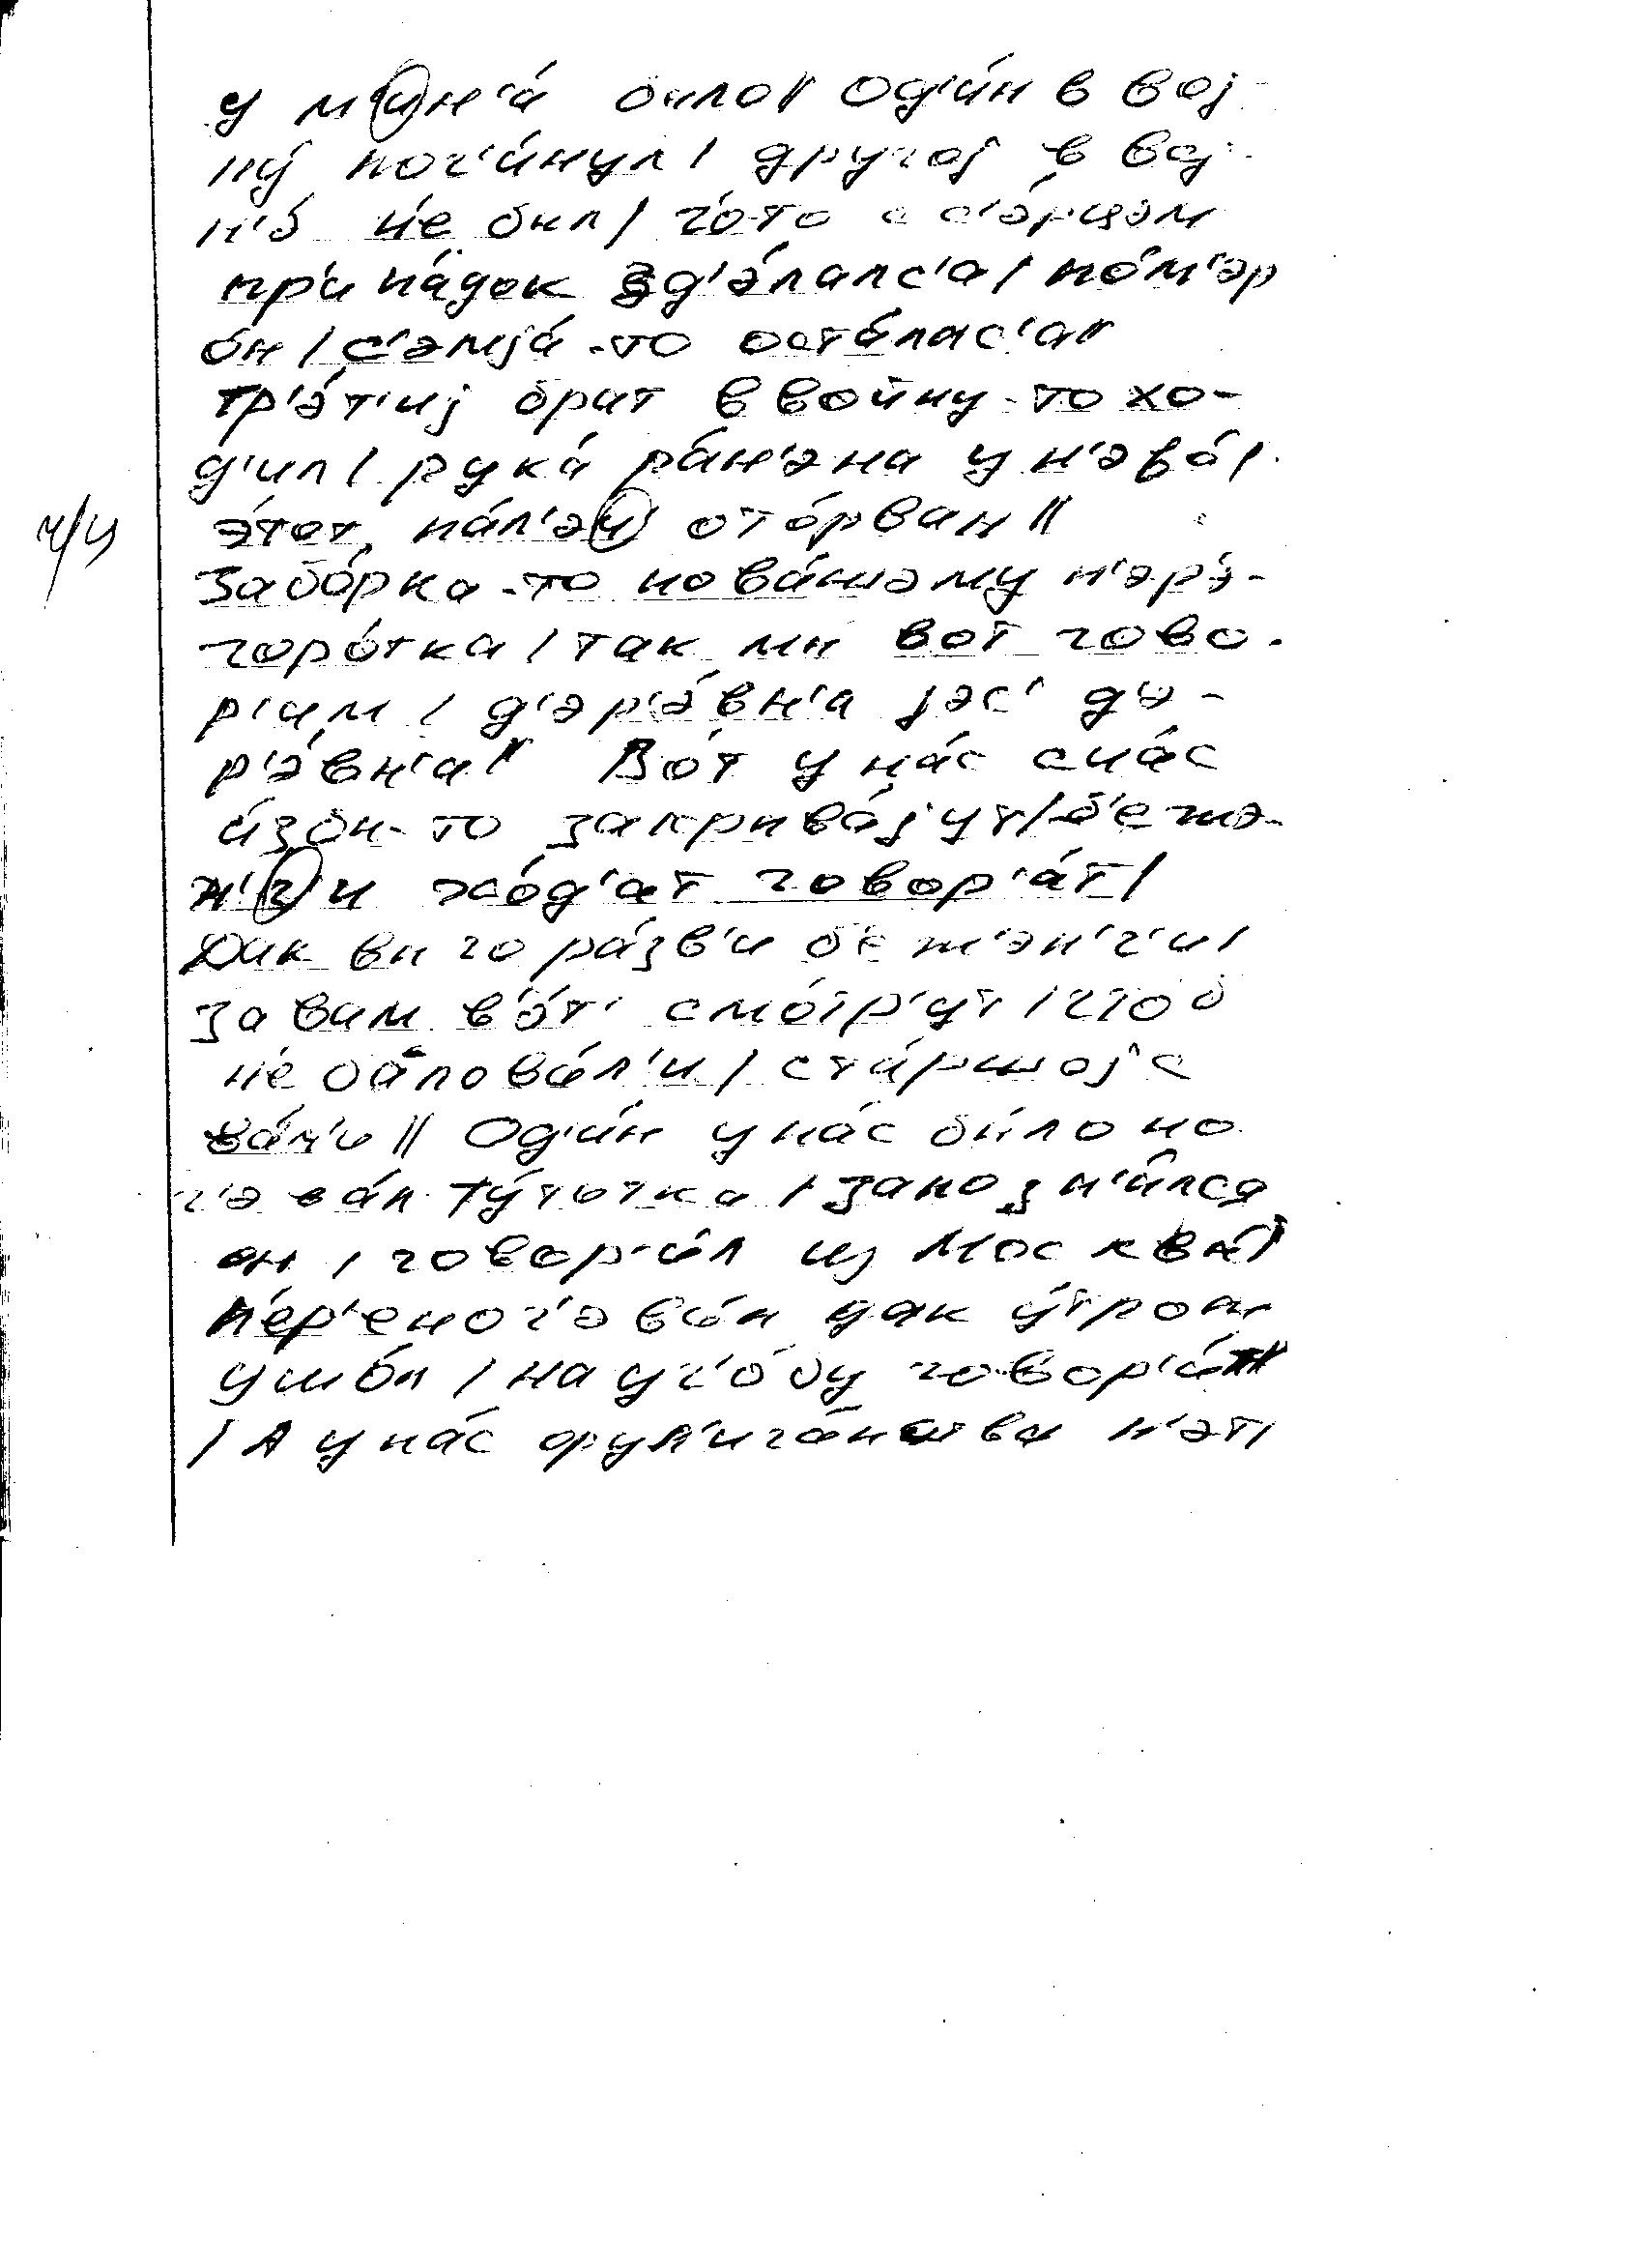 у м(и)н'á било// Од'и́н в вој-
ну́ пог'и́нул / другој в вој-
н'э́ н'е бил / го́-то с с'э́рцэм
при пáдок зд'э́лалс'а / по́м'эр
о́н / с'эмjá-то остáлас'а//
тр'э́т'иј брат в войну-то хо-
д'ил / рукá рáн'эна у н'эвó /
э́тот пáл'э(ц) ото́рван //
ч/ц
Забо́рка-то по вáшэму п'эр'э-
горо́тка / так ми вот гово-
р'им / д'эр'э́вн'а јэс' д'э-
р'э́вн'а// Вот у нáс счáс
и́зби-то закривáјут / б'еж э-
н'(ц)и хо́д'ат говор'áт /
Дак ви го рáзв'и б'еж'эн'ц'и /
за вам в'эт' смо́тр'ут / чтоб
н'е баловáл'и / стáршој с
вáм'и // Од'и́н у нáс би́ло но
ч'эвáл ту́тотка / запозн'и́лся
он / говор'и́л из Москвы́ /
п'ер'еноч'эвáл дак у́тром
ушо́л / на уч'о́бу говор'и́т//
/ А у нáс фул'игáнства н'эт /